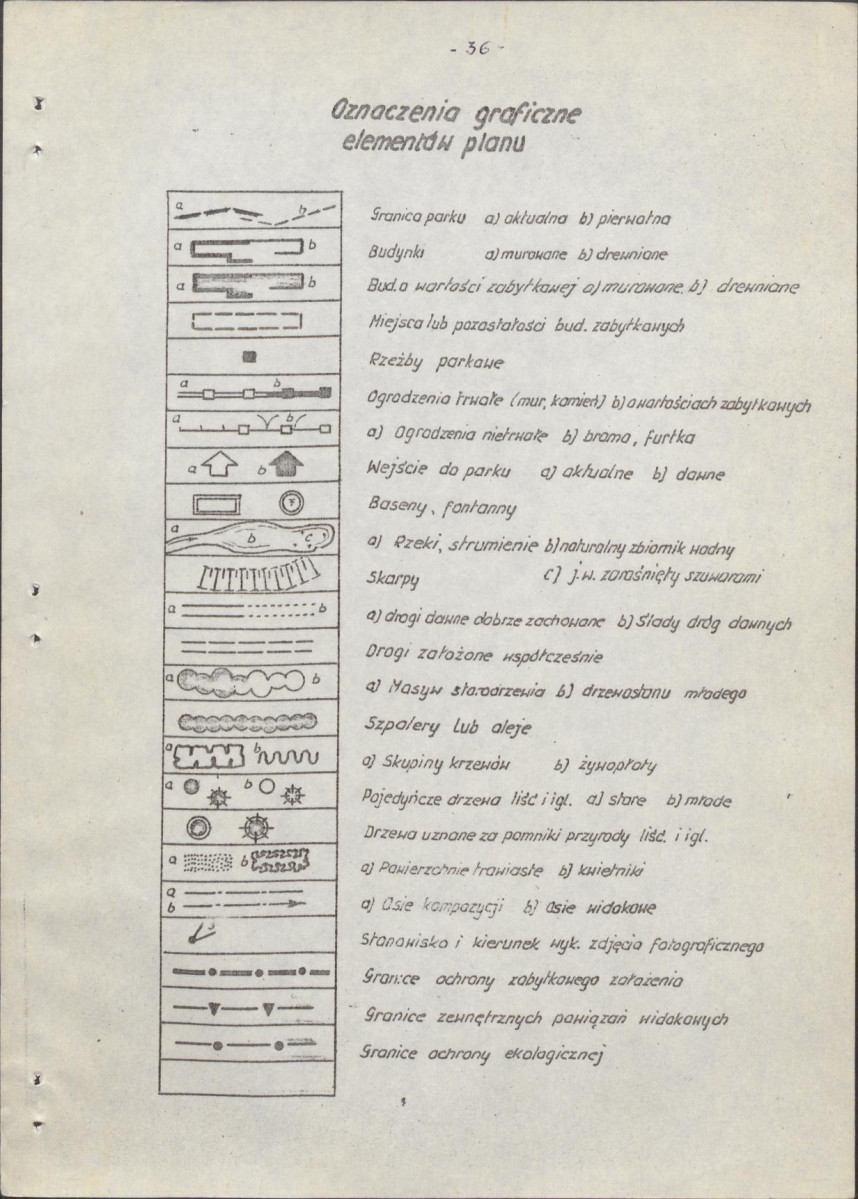 - 36 -
Oznaczenia graficzne
elementów planu
a b Granica parku a) aktualna b) pierwotna
a b Budynki a) murowane b) drewniane
a b Bud. o wartości zabytkowej a) murowane b) drewniane
Miejsca lub pozostałości bud. zabytkowych
Rzeźby parkowe
a b Ogrodzenia trwałe (mur, kamień) b) o wartościach zabytkowych
a b a) Ogrodzenia nietrwałe b) brama, furtka
a b Wejście do parku a) aktualne b) dawne
F Baseny, fontanny
a b c a) Rzeki, strumienie b) naturalny zbiornik wodny
Skarpy c) j.w. zarośnięty szuwarami
a b a) drogi dawne dobrze zachowane b) Ślady dróg dawnych
Drogi założone współcześnie
a b a) Masyw starodrzewia b) drzewostanu młodego
Szpalery lub aleje
a b a) Skupiny krzewów b) żywopłoty
a b Pojedyńcze drzewa liść i igl. a) stare b) młode
Drzewa uznane za pomniki przyrody liść. i igl.
a b a) Powierzchnie trawiaste b) kwietniki
a a) Osie kompozycji b) Osie widokowe
b
3 Stanowisko i kierunek wyk. zdjęcia fotograficznego
Granice ochrony zabytkowego założenia
Granice zewnętrznych powiązań widokowych
Granice ochrony ekologicznej